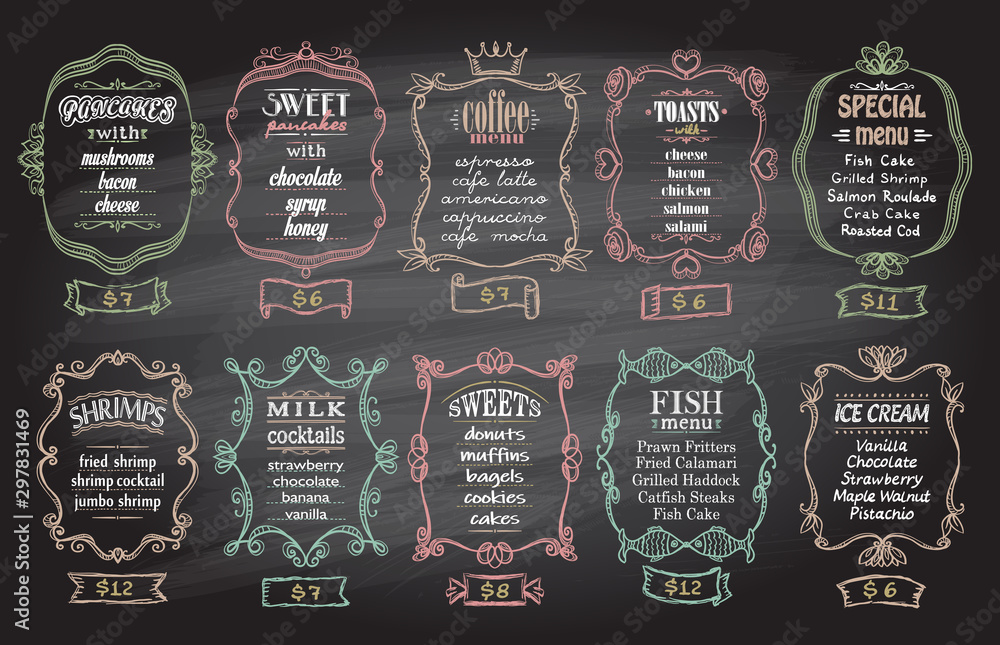 PANCAKES
with
mushrooms
bacon
cheese
$7
SWEET
pancakes
with
chocolate
syrup
honey
$6
coffee
menu
espresso
cafe latte
americano
cappuccino
cafe mocha
$7
TOASTS
with
cheese
bacon
chicken
salmon
salami
$6
SPECIAL
menu
Fish Cake
Grilled Shrimp
Salmon Roulade
Crab Cake
Roasted Cod
$11
SHRIMPS
fried shrimp
shrimp cocktail
jumbo shrimp
$12
MILK
cocktails
strawberry
chocolate
banana
vanilla
$7
SWEETS
donuts
muffins
bagels
cookies
cakes
$8
FISH
menu
Prawn Fritters
Fried Calamari
Grilled Haddock
Catfish Steaks
Fish Cake
$12
ICE CREAM
Vanilla
Chocolate
Strawberry
Maple Walnut
Pistachio
$6
Adobe Stock | #297831469
Adobe Stock